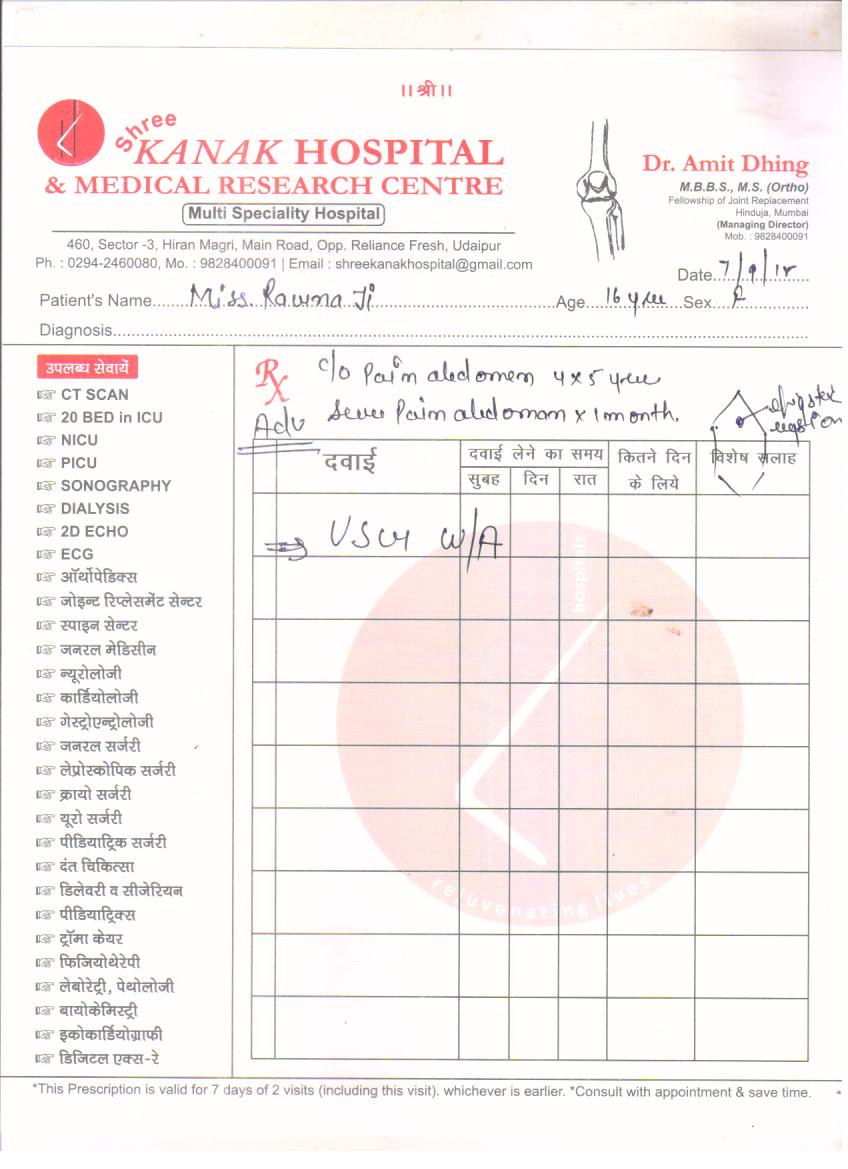 ।। श्री ।।
Shree
KANAK HOSPITAL
& MEDICAL RESEARCH CENTRE
Multi Speciality Hospital
460, Sector -3, Hiran Magri, Main Road, Opp. Reliance Fresh, Udaipur
Ph. : 0294-2460080, Mo. : 9828400091 | Email : shreekanakhospital@gmail.com
Dr. Amit Dhing
M.B.B.S., M.S. (Ortho)
Fellowship of Joint Replacement
Hinduja, Mumbai
(Managing Director)
Mob. : 9828400091
Date 7/9/
Patient's Name Miss Ji Age 16 Sex
Diagnosis
उपलब्ध सेवायें
CT SCAN
20 BED in ICU
NICU
PICU
SONOGRAPHY
DIALYSIS
2D ECHO
ECG
ऑर्थोपेडिक्स
जोइन्ट रिप्लेसमेंट सेन्टर
स्पाइन सेन्टर
जनरल मेडिसीन
न्यूरोलोजी
कार्डियोलोजी
गेस्ट्रोएन्ट्रोलोजी
जनरल सर्जरी
लेप्रोस्कोपिक सर्जरी
क्रायो सर्जरी
यूरो सर्जरी
पीडियाट्रिक सर्जरी
दंत चिकित्सा
डिलेवरी व सीजेरियन
पीडियाट्रिक्स
ट्रॉमा केयर
फिजियोथेरेपी
लेबोरेट्री, पेथोलोजी
बायोकेमिस्ट्री
इकोकार्डियोग्राफी
डिजिटल एक्स-रे
Rx c/o Pain abdomen 4 x 5
Adv Pain x 1 month.
दवाई दवाई लेने का समय कितने दिन के लिये विशेष सलाह
सुबह दिन रात
W/A
hospitals
rejuvenating lives
*This Prescription is valid for 7 days of 2 visits (including this visit). whichever is earlier. *Consult with appointment & save time.